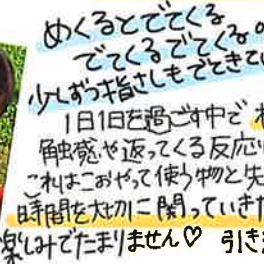 めくるとでてくる
でてくるでてくる。
少しずつ指さしもでてきて
1日1日を過ごす中で
触感や返ってくる反応
これはこおやって使う物と
時間を大切に関っていきた
楽しみでたまりません♡ 引き